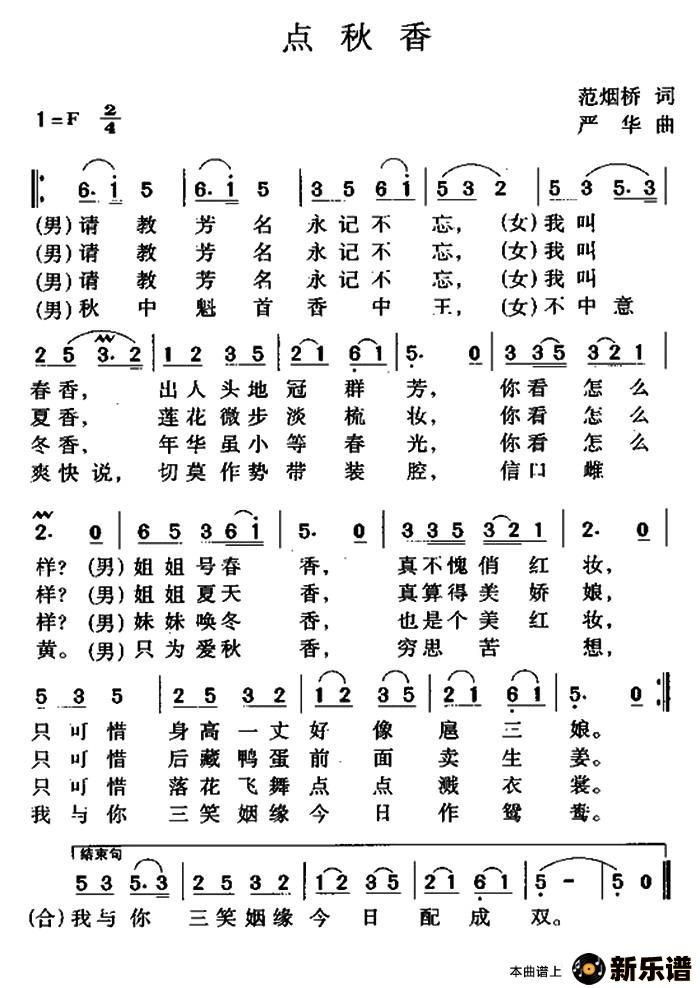 点秋香
范烟桥 词
1=F 2/4
严华 曲
6. i 5 6. i 5 3 5 6 i 5 3 2 5 3 5. 3
(男)请教芳名永记不忘，(女)我叫
(男)请教芳名永记不忘，(女)我叫
(男)请教芳名永记不忘，(女)我叫
(男)秋中魁首香中王，(女)不中意
2 5 3. 2 1 2 3 5 2 1 6 1 5. 0 3 3 5 3 2 1
春香，出人头地冠群芳，你看怎么
夏香，莲花微步淡梳妆，你看怎么
冬香，年华虽小等春光，你看怎么
爽快说，切莫作势带装腔，信口雌
2. 0 6 5 3 6 i 5. 0 3 3 5 3 2 1 2. 0
样？(男)姐姐号春香，真不愧俏红妆，
样？(男)姐姐夏天香，真算得美娇娘，
样？(男)妹妹唤冬香，也是个美红妆，
黄。(男)只为爱秋香，穷思苦想，
5 3 5 2 5 3 2 1 2 3 5 2 1 6 1 5. 0
只可惜身高一丈好像扈三娘。
只可惜后藏鸭蛋前面卖生姜。
只可惜落花飞舞点点溅衣裳。
我与你三笑姻缘今日作鸳鸯。
结束句
5 3 5. 3 2 5 3 2 1 2 3 5 2 1 6 1 5 - 5 0
(合)我与你三笑姻缘今日配成双。
本曲谱上 新乐谱